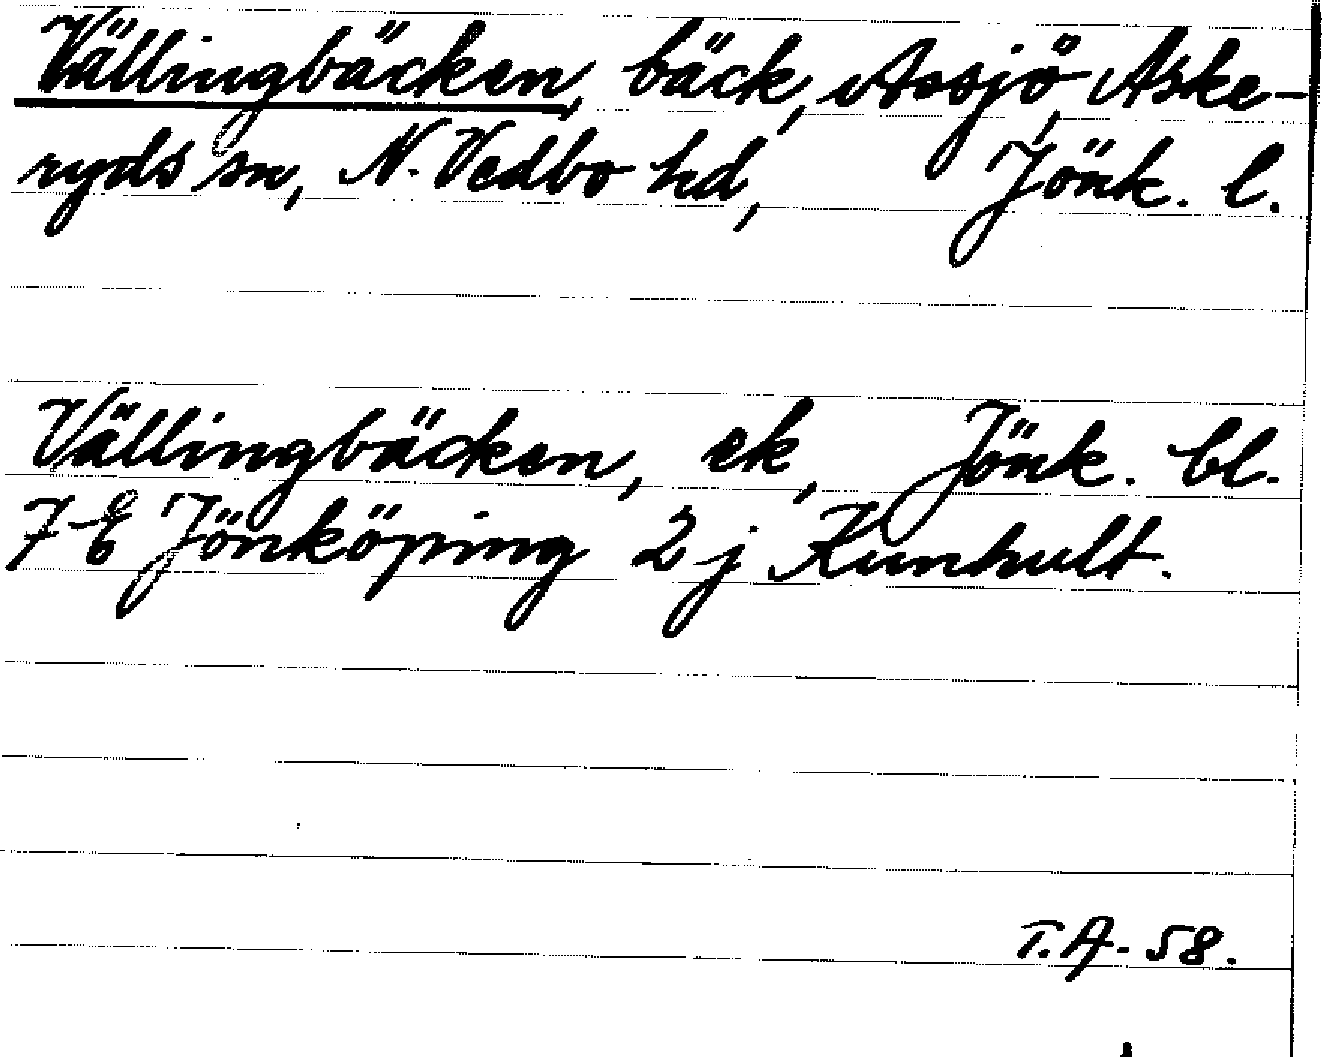 Vällingbäcken, bäck, Assjö, Aske-
ryds sn, N. Vedbo hd, Jönk. l.
Vällingbäcken, ek, Jönk. bl.
7 E Jönköping 2 j Kunhult.
T.A-58.